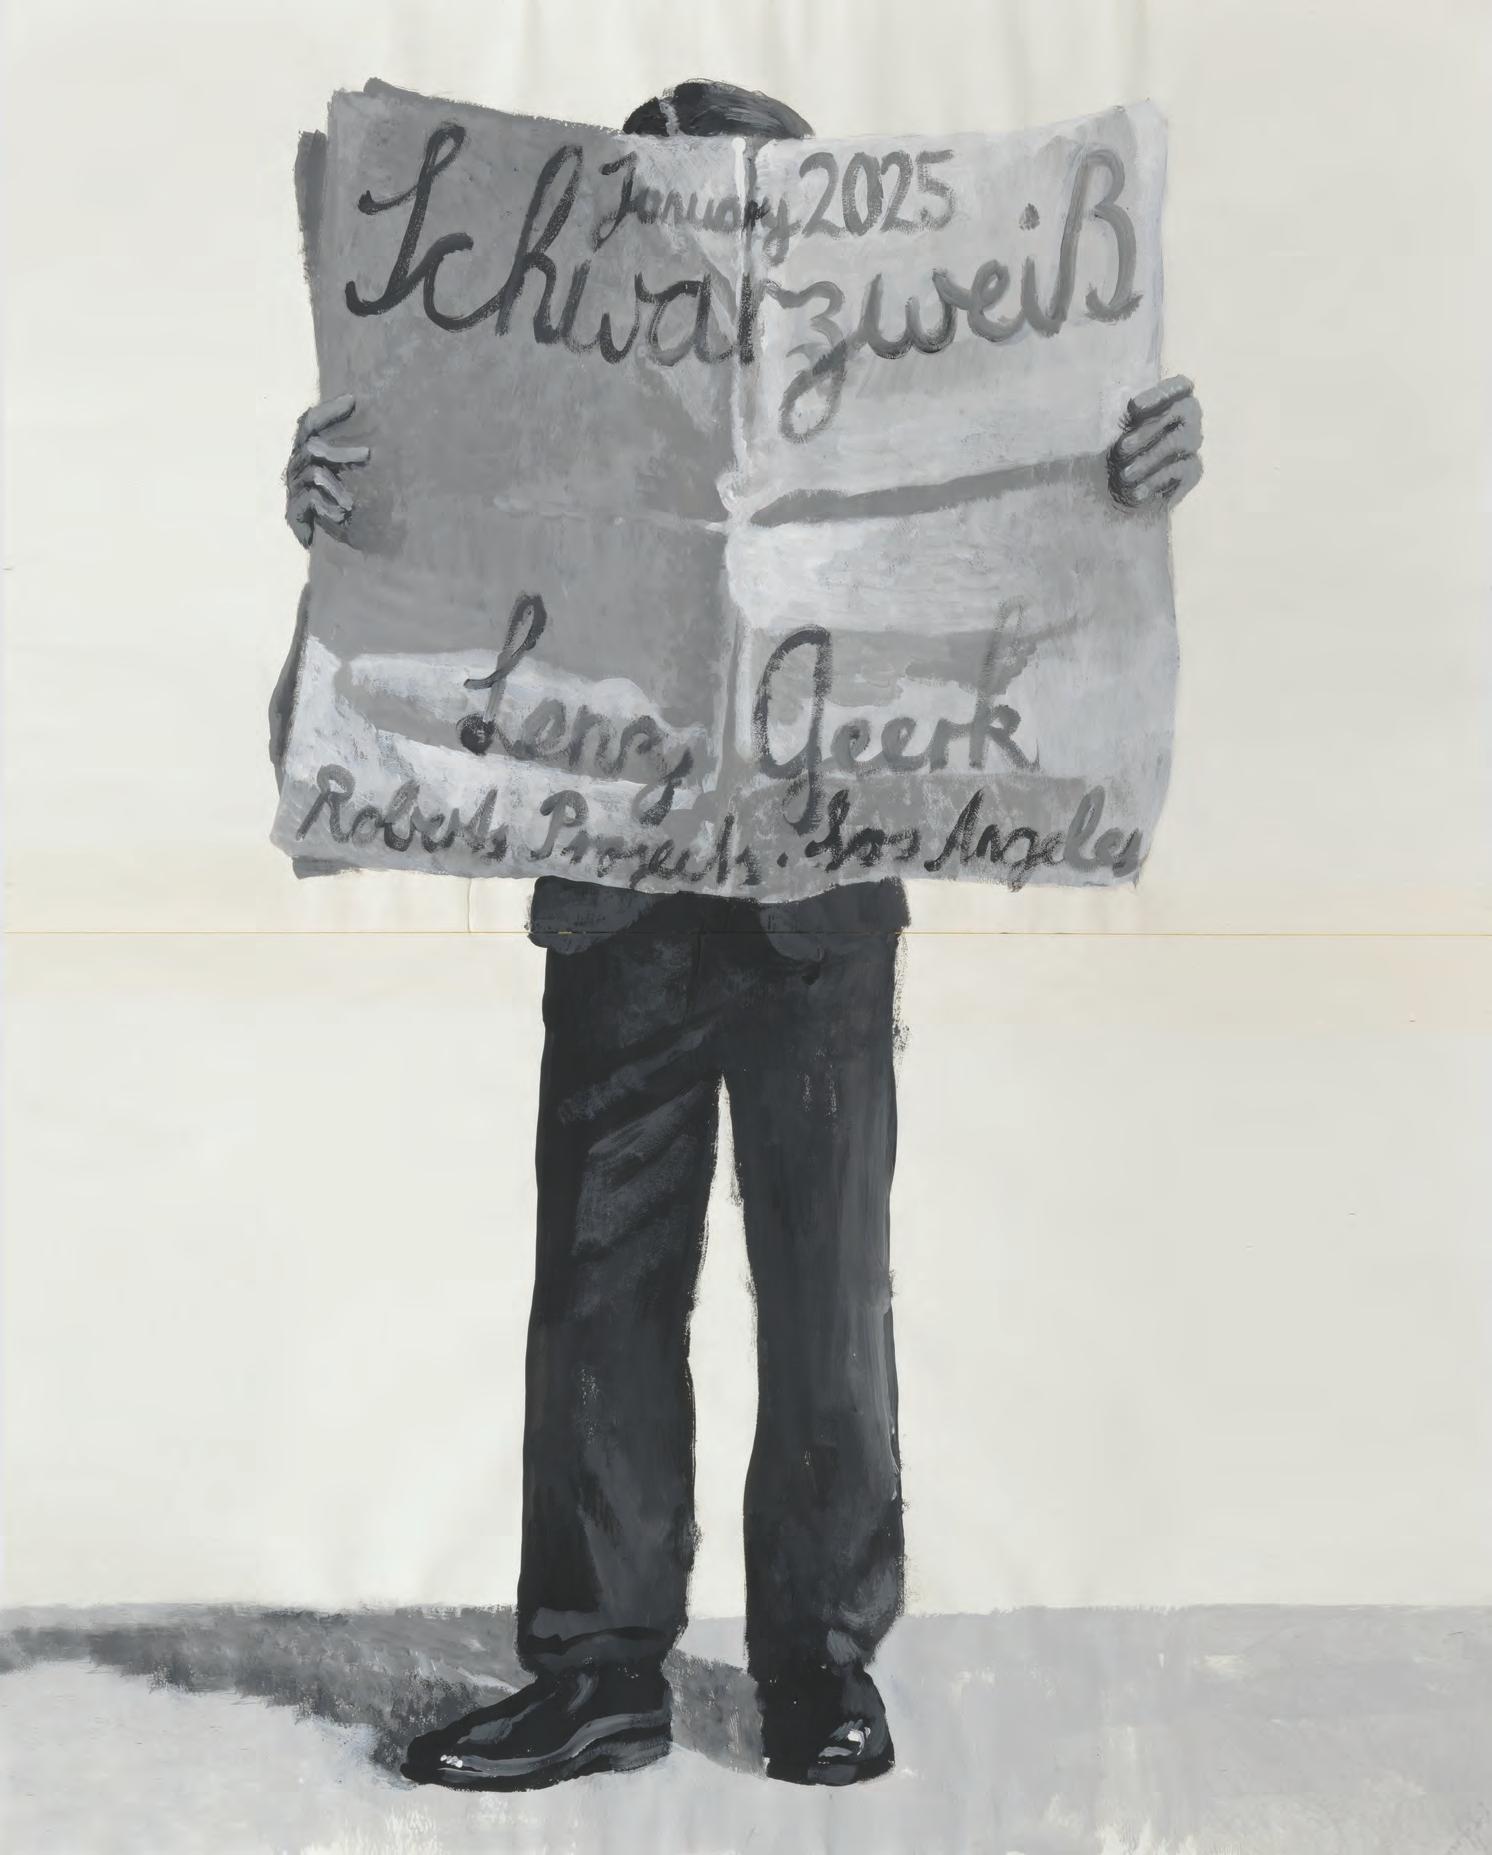 January 2025
Schwarzweiß
Lenz Geerk
Roberts Projects. Los Angeles